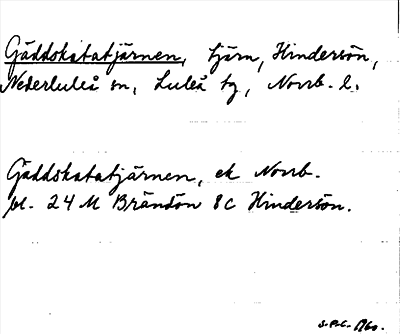 Gäddskatatjärnen, tjärn, Hindersön,
Nederluleå sn, Luleå tg, Norrb. l.
Gäddskatatjärnen, ek Norrb.
bl. 24 M Brändön 8 C Hindersön.
1960.